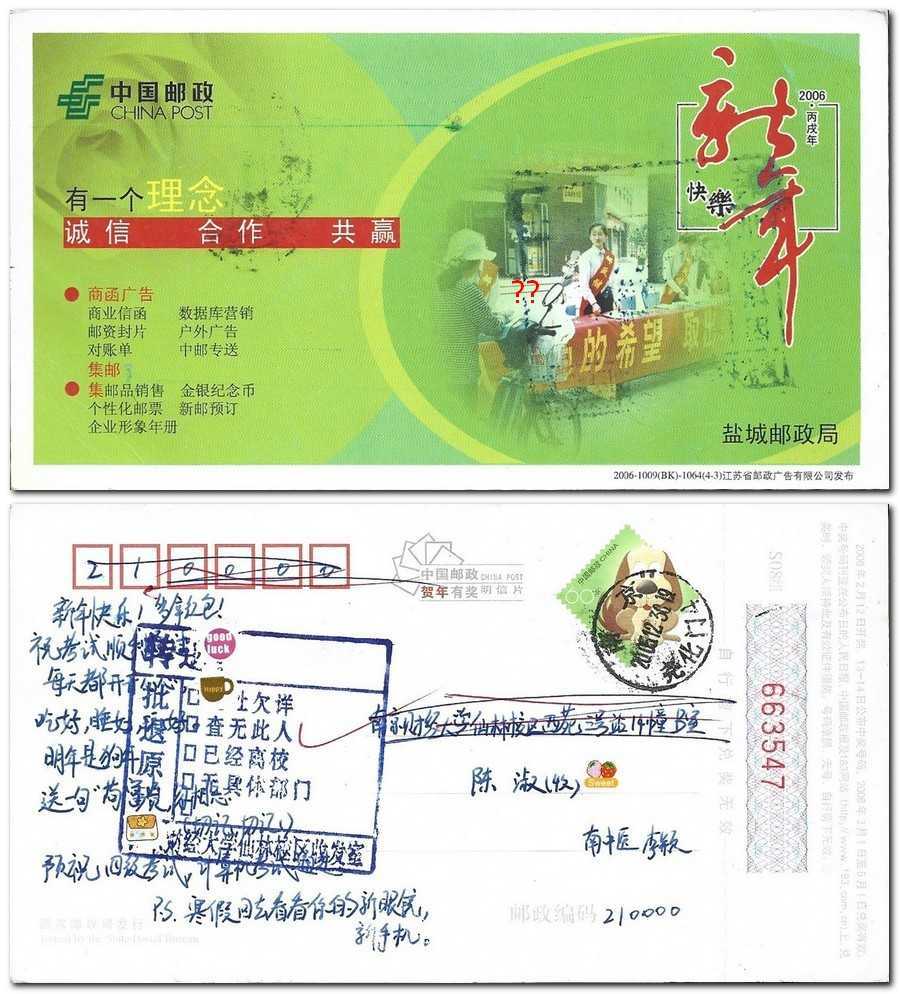 中国邮政
CHINA POST
有一个理念
诚信 合作 共赢
商函广告
商业信函 数据库营销
邮资封片 户外广告
对账单 中邮专送
集邮
集邮品销售 金银纪念币
个性化邮票 新邮预订
企业形象年册
新年
快樂
2006
·丙戌年
??
的希望 取出
盐城邮政局
2006-1009(BK)-1064(4-3)江苏省邮政广告有限公司发布
210000
中国邮政 CHINA POST
贺年有奖 明信片
中国邮政 CHINA
60分
2005.12.31.12
新年快乐!多拿红包!
祝考试顺
good luck
每天都开
Happy
吃好,睡好
明年是狗年
送一句
批退原
欠详
查无此人
已经离校
无具体部门
财经大学仙林校区收发室
南京财经大学仙林校区西苑
陈 淑(收)
Sweet
南中医 李颖
预祝四级考试,计算机考试
P.S. 寒假回去看看你的新眼镜,
新手机。
邮政编码 210000
国家邮政局发行
Issued by the State Postal Bureau
自行剪下兑奖无效
663547